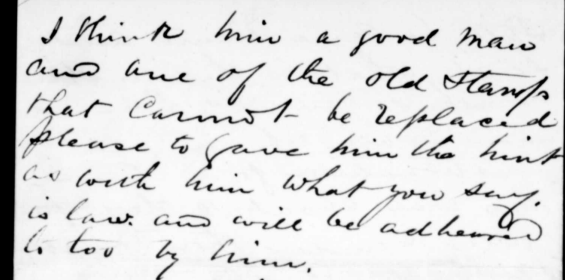 I think him a good man
and one of the old stamps
that cannot be replaced
please to gave him the hint
as with him what you say.
is law. and will be adheared
to too by him.